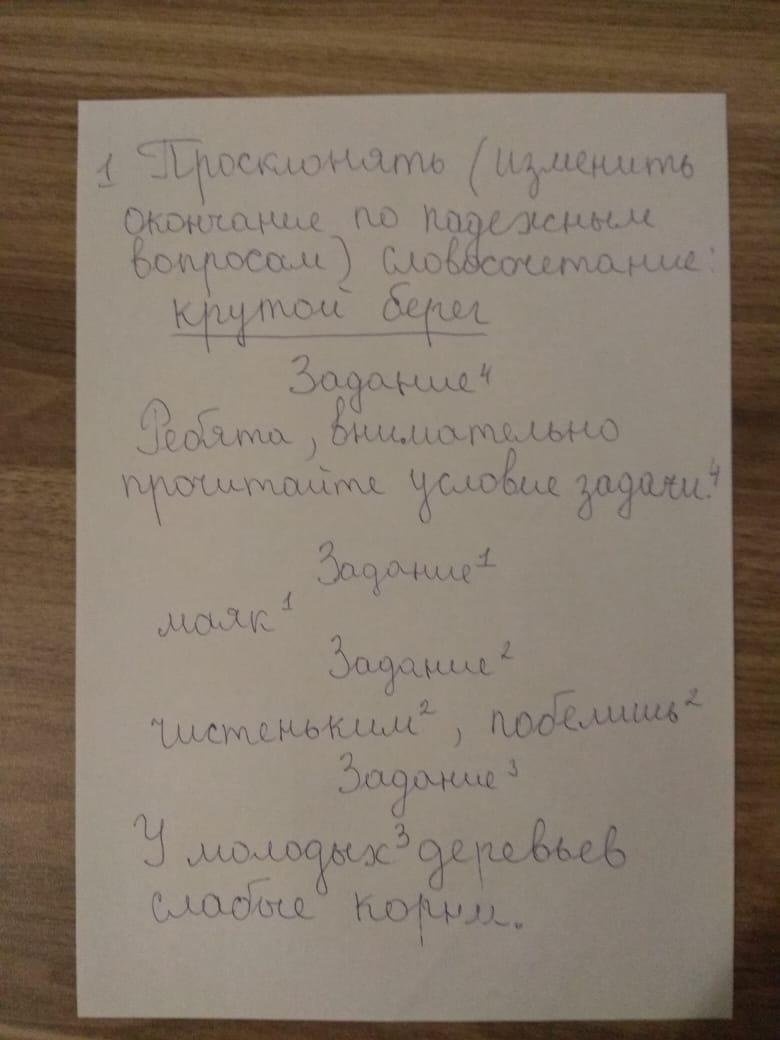 1 Просклонять (изменить
окончание по падежным
вопросам) словосочетание:
крутой берег
Задание⁴
Ребята, внимательно
прочитайте условие задачи.⁴
Задание¹
маяк¹
Задание²
чистеньким², побелишь²
Задание³
У молодых³ деревьев
слабые корни.